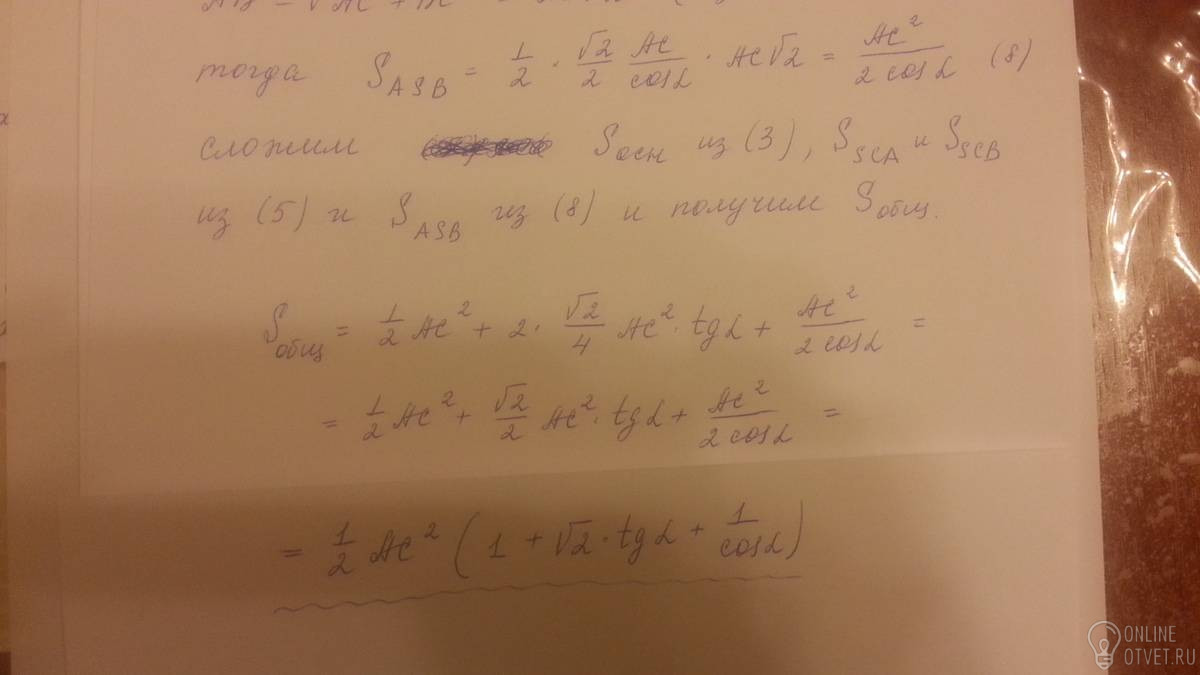 тогда S_ASB = 1/2 · √2/2 AC/cosα · AC√2 = AC²/2cosα (8)
сложим Sосн из (3), S_SCA и S_SCB
из (5) и S_ASB из (8) и получим Sобщ.
Sобщ = 1/2 AC² + 2 · √2/4 AC² · tgα + AC²/2cosα =
= 1/2 AC² + √2/2 AC² · tgα + AC²/2cosα =
= 1/2 AC² (1 + √2 · tgα + 1/cosα)
ONLINE
OTVET.RU